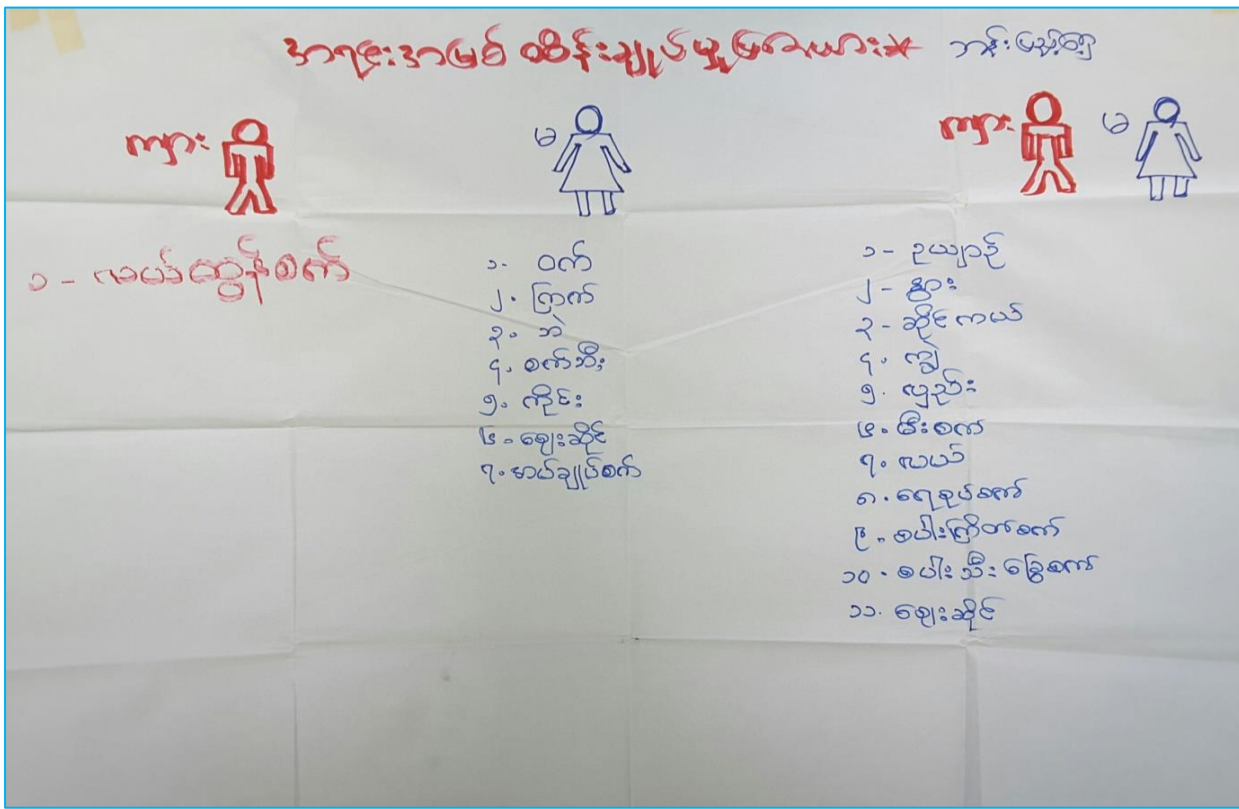 အရင်းအမြစ် ထိန်းချုပ်မှု မြဇယား*
ကျား
မ
ကျား မ
၁ - လယ်ထွန်စက်
၁- ဝက်
၂. ကြက်
၃. ဘဲ
၄. စက်ဘီး
၅. ကိုင်း
၆- ဈေးဆိုင်
၇. စာပ်ချုပ်စက်
၁- ဥယျာဉ်
၂- နွား
၃- ဆိုင်ကယ်
၄. ကျွဲ
၅. လှည်း
၆. မီးစက်
၇. လယ်
၈. ရေစုပ်စက်
၉. စပါးကြိတ်စက်
၁၀. စပါးသီးခြွေစက်
၁၁. ဈေးဆိုင်